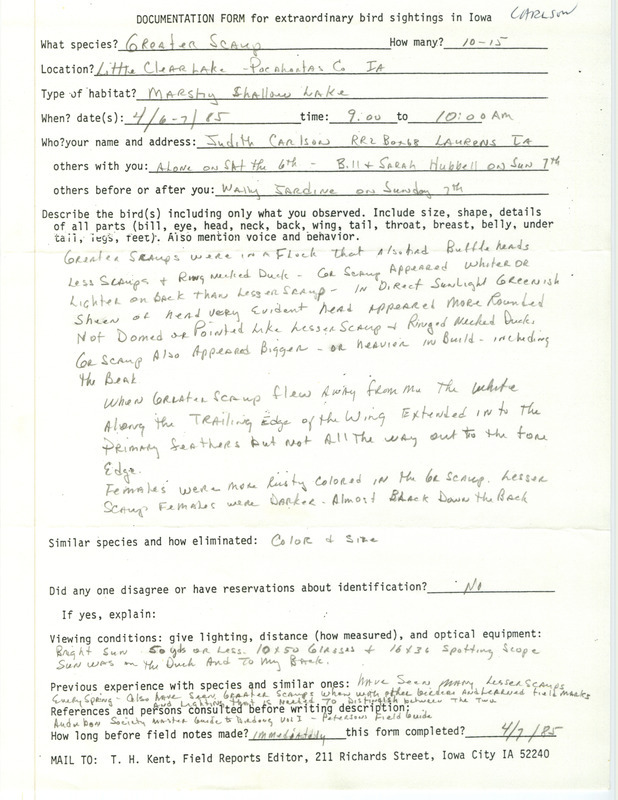 CARLSON
DOCUMENTATION FORM for extraordinary bird sightings in Iowa
What species? Greater Scaup How many? 10-15
Location? Little Clear Lake - Pocahontas Co IA
Type of habitat? Marshy Shallow Lake
When? date(s): 4/6-7/85 time: 9:00 to 10:00 Am
Who? your name and address: Judith Carlson RR2 Box 68 Laurens IA
others with you: Alone on Sat the 6th - Bill & Sarah Hubbell on Sun 7th
others before or after you: Wally Jardine on Sunday 7th
Describe the bird(s) including only what you observed. Include size, shape, details
of all parts (bill, eye, head, neck, back, wing, tail, throat, breast, belly, under
tail, legs, feet). Also mention voice and behavior.
Greater Scaups were in a Flock that also had Buffleheads
Less Scaups & Ring Necked Duck - Gr Scaup Appeared Whiter or
Lighter on back than Lesser Scaup - In Direct Sunlight Greenish
Sheen on head very Evident head appeared More Rounded
Not Domed or Pointed Like Lesser Scaup & Ringed Necked Duck.
Gr Scaup Also Appeared Bigger - or heavier in Build - including
the Beak
When Greater Scaup flew Away from me the white
Along the Trailing Edge of the Wing Extended in to the
Primary feathers but not All the way out to the fore
Edge.
Females were more Rusty colored in the Gr Scaup. Lesser
Scaup Females were Darker - Almost Black Down the Back
Similar species and how eliminated: Color & Size
Did any one disagree or have reservations about identification? No
If yes, explain:
Viewing conditions: give lighting, distance (how measured), and optical equipment:
Bright Sun 50 yds or Less. 10x50 Glasses & 16x36 Spotting Scope
Sun was on the Duck And To My Back.
Previous experience with species and similar ones: Have Seen Many Lesser Scaups
Every Spring - Also have Seen Greater Scaups when with other birders And Learned field Marks
And Lighting that is Needed To Distinguish between The Two
References and persons consulted before writing description:
Audubon Society Master Guide to Birding Vol I - Petersons Field Guide
How long before field notes made? immediately this form completed? 4/7/85
MAIL TO: T. H. Kent, Field Reports Editor, 211 Richards Street, Iowa City IA 52240